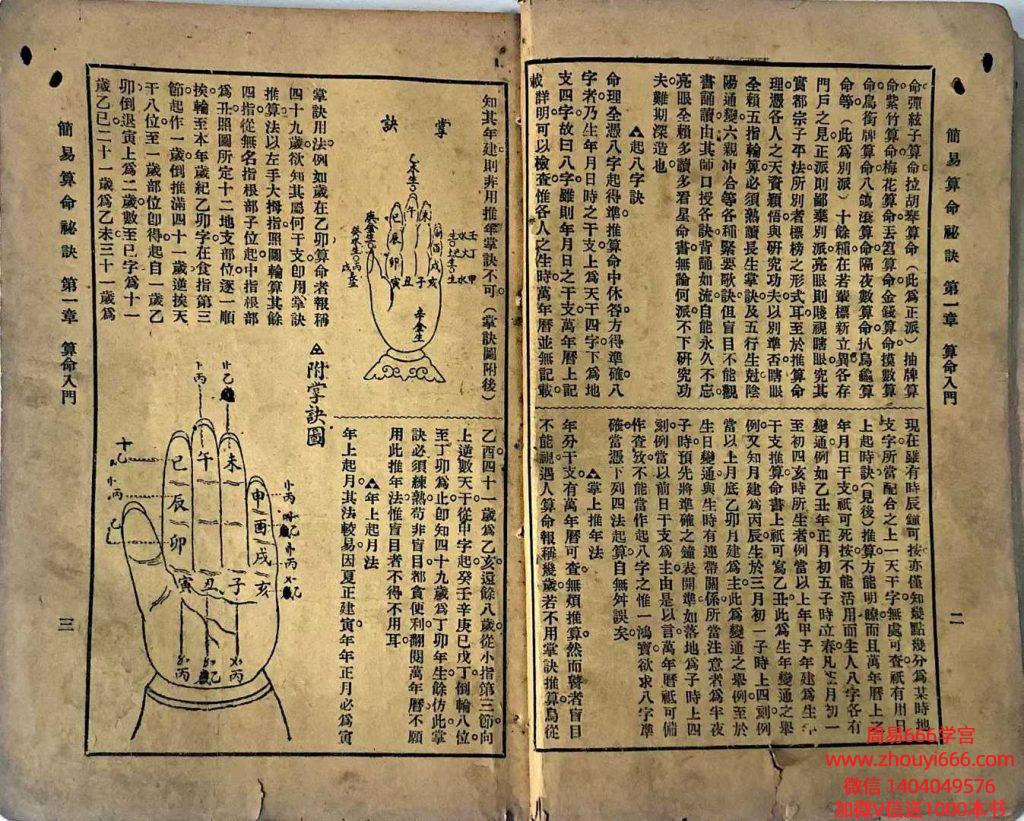 簡易算命祕訣 第一章 算命入門 二
命彈絃子算命拉胡琴算命(此爲正派)抽牌算
命紫竹算命梅花算命丟筶算命金錢算命摸數算
命鳥銜牌算命八鴿滾算命隔夜數算命扒烏龜算
命等(此爲別派)十餘種在若輩標新立異各存
門戶之見正派則鄙棄別派亮眼則賤視瞎眼究其
實都宗子平法所別者標榜之形式耳至於推算命
理憑各人之天資穎悟與研究功夫以別準否瞎眼
全賴五指輪算必須熟讀長生掌訣及五行生尅陰
陽通變六親冲合等各種緊要歌訣但盲目不能觀
書誦讀由其師口授各訣背誦如流自能永久不忘
亮眼全賴多讀多看星命書無論何派不下研究功
夫難期深造也
起八字訣
命理全憑八字起得準推算命中休咎方得準確八
字者乃生年月日時之干支上爲天干四字下爲地
支四字故曰八字雖則年月日之干支萬年曆上記
載詳明可以檢查惟各人之生時萬年曆並無記載
現在雖有時辰鐘可按亦僅知幾點幾分爲某時地
支字所當配合之上一天干字無處可查祇有用日
上起時訣(見後)推算方能明瞭而且萬年曆上之
年月日干支祇可死按不能活用而生人八字各有
變通例如乙丑年正月初五子時立春凡正月初一
至初四亥時所生者例當以上年甲子年建爲生年
干支推算命書上祇可寫乙丑此爲生年變通之舉
例又如月建爲丙辰生於三月初一子時上四刻例
當以上月底乙卯月建爲主此爲變通之舉例至於
生日變通與生時有連帶關係所當注意者爲半夜
子時預先將準確之鐘表開準如落地爲子時上四
刻例當以前日干支爲主由是以言萬年曆祇可備
作查攷不能當作起八字之惟一鴻寶欲求八字準
確當憑下列四法起算自無舛誤矣
掌上推年法
年分干支有萬年曆可查無煩推算然而瞽者盲目
不能視遇人算命報稱幾歲若不用掌訣推算烏從
簡易算命祕訣 第一章 算命入門 三
知其年建則非用推年掌訣不可(掌訣圖附後)
掌訣
掌訣用法例如歲在乙卯算命者報稱
四十九歲欲知其屬何干支即用掌訣
推算法以左手大拇指照圖輪算其餘
四指從無名指根部子位起中指根部
爲丑照圖所定十二地支部位逐一順
挨輪至本年歲紀乙卯字在食指第三
節起作一歲倒推滿四十一歲逆挨天
干八位至一歲部位即得起自一歲乙
卯倒退寅上爲二歲數至巳字爲十一
歲乙巳二十一歲爲乙未三十一歲爲
乙酉四十一歲爲乙亥還餘八歲從小指第三節向
上逆數天干從甲字起癸壬辛庚己戊丁倒輪八位
至丁卯爲止即知四十九歲爲丁卯年生餘仿此掌
訣必須練熟苟非盲目都貪便利翻閱萬年曆不願
用此推年法惟盲目者不得不用耳
年上起月法
年上起月其法較易因夏正建寅年年正月必爲寅
附掌訣圖
巳 午 未 申
辰 酉
卯 戌
寅 丑 子 亥
周易666学宫
www.zhouyi666.com
微信 1404049576
加微V信送1000本书